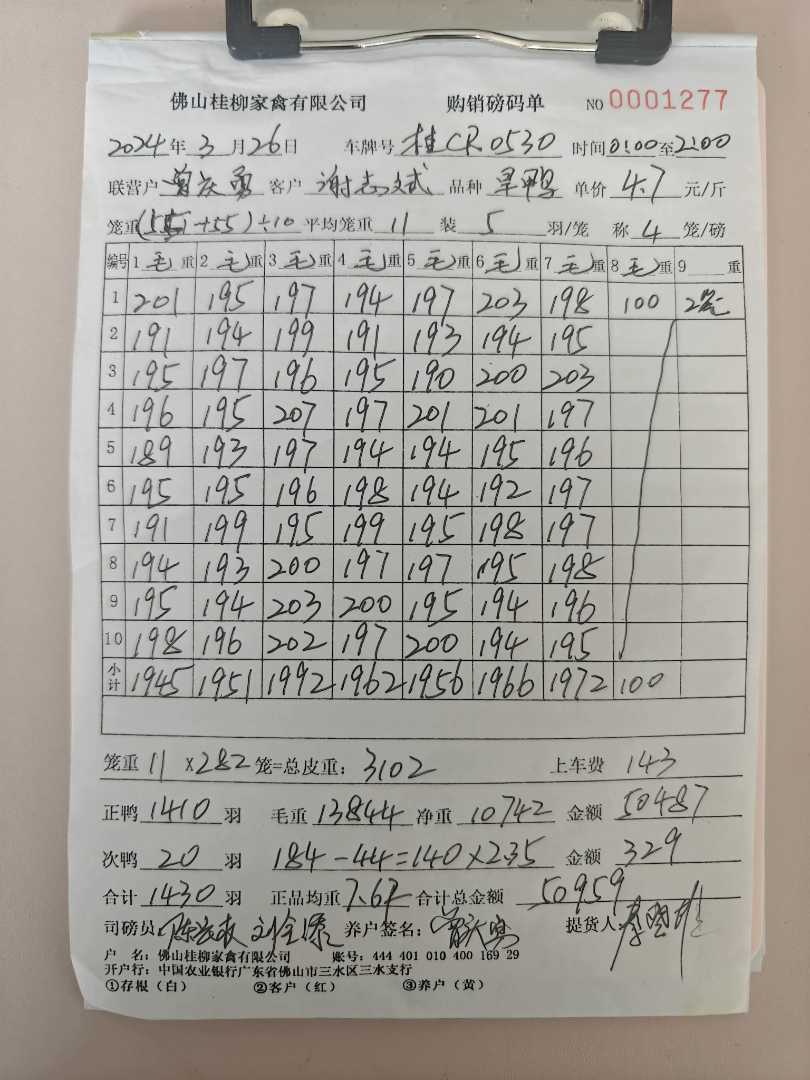 佛山桂柳家禽有限公司 购销磅码单 NO 0001277
2024年3月26日 车牌号 桂CR0530 时间0:00至2:00
联营户 曾庆勇 客户 谢志斌 品种 旱鸭 单价 4.7 元/斤
笼重(55+55)÷10 平均笼重 11 装 5 羽/笼 称 4 笼/磅
编号 1毛重 2毛重 3毛重 4毛重 5毛重 6毛重 7毛重 8毛重 9 重
1 201 195 197 194 197 203 198 100 2笼
2 191 194 199 191 193 194 195
3 195 197 196 195 190 200 203
4 196 195 207 197 201 201 197
5 189 193 197 194 194 195 196
6 195 195 196 198 194 192 197
7 191 199 195 199 195 198 197
8 194 193 200 197 197 195 198
9 195 194 203 200 195 194 196
10 198 196 202 197 200 194 195
小计 1945 1951 1992 1962 1956 1966 1972 100
笼重 11 x282 笼=总皮重: 3102 上车费 143
正鸭 1410 羽 毛重 13844 净重 10742 金额 50487
次鸭 20 羽 184-44=140×2.35 金额 329
合计 1430 羽 正品均重 7.62 合计总金额 50959
司磅员 养户签名: 提货人
户 名: 佛山桂柳家禽有限公司 账号: 444 401 010 400 169 29
开户行: 中国农业银行广东省佛山市三水区三水支行
①存根(白) ②客户(红) ③养户(黄)